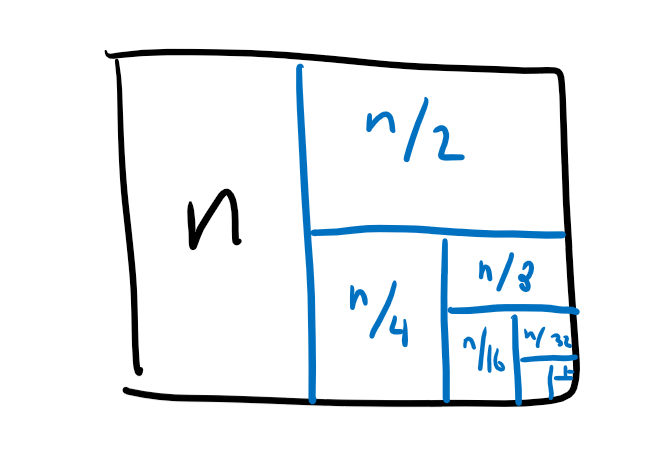 n
n/2
n/4
n/8
n/16
n/32